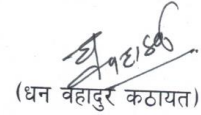 (धन वहादुर कठायत)